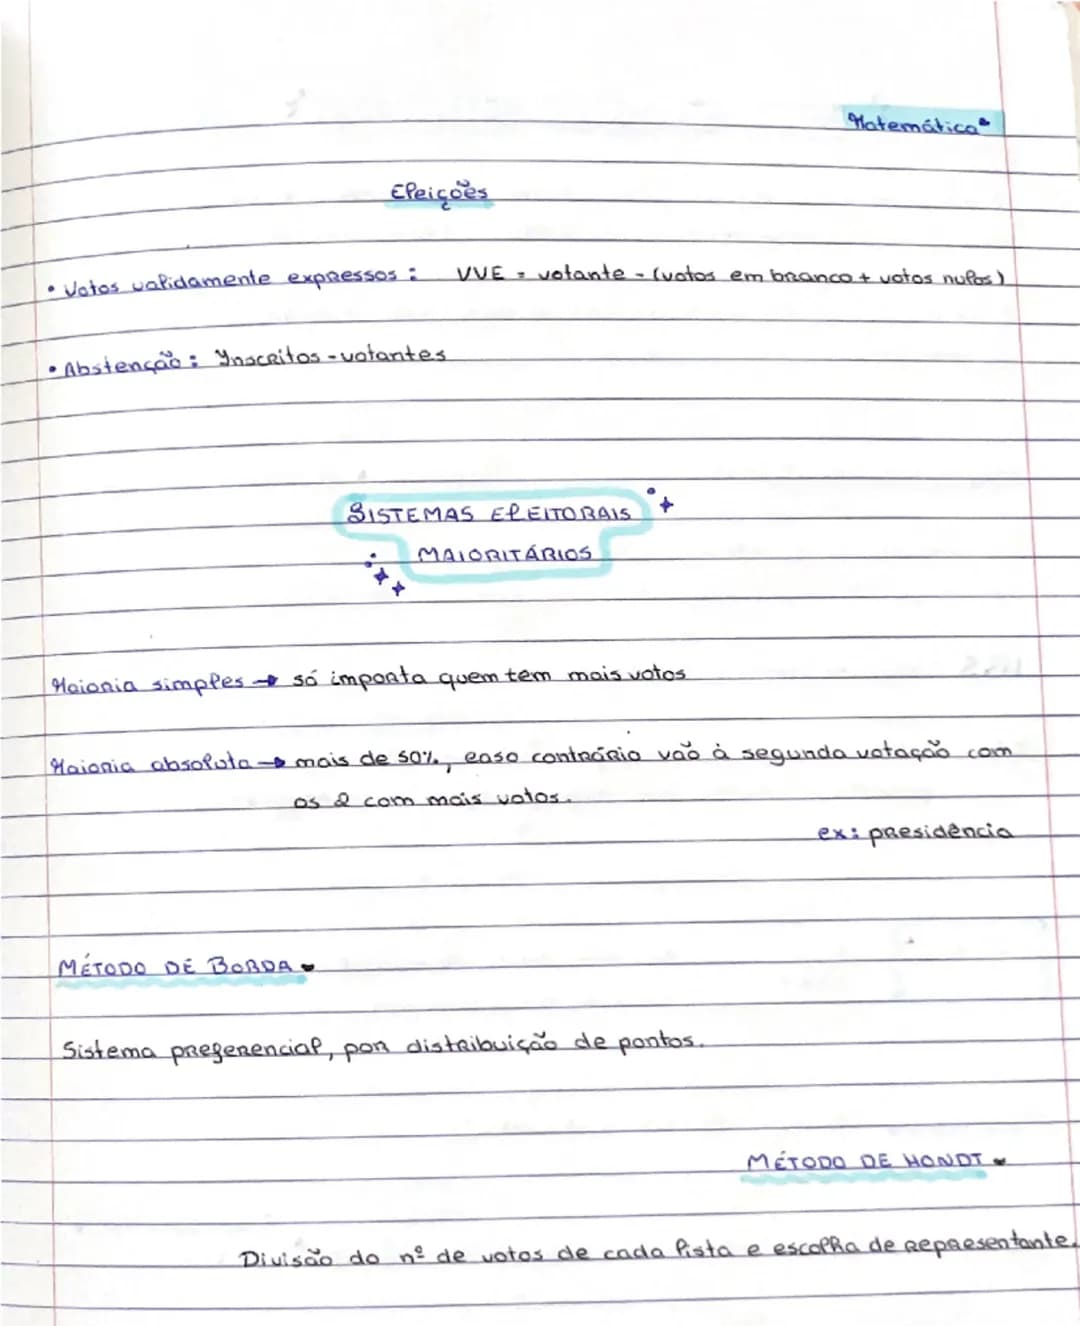 Matemática
Eleições
• Votos validamente expressos : VVE = votante - (votos em branco + votos nulos)
• Abstenção : Inscritos - votantes
SISTEMAS ELEITORAIS
MAIORITÁRIOS
Maioria simples → só importa quem tem mais votos
Maioria absoluta → mais de 50%, caso contrário vão à segunda votação com
os 2 com mais votos.
ex: presidência
MÉTODO DE BORDA
Sistema preferencial, por distribuição de pontos.
MÉTODO DE HONDT
Divisão do nº de votos de cada lista e escolha de representante.